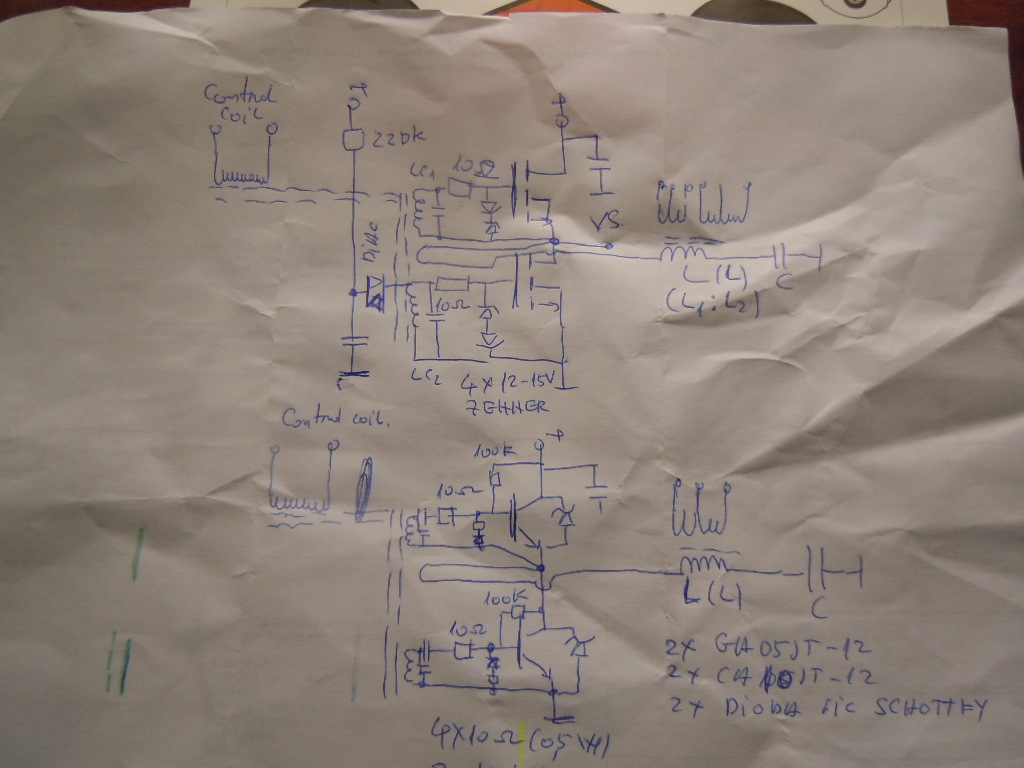 Control
COIL
+
+
220K
LC1
10Ω
VS
Diac
L (L)
C
(L1:L2)
10Ω
LC2
4 x 12-15V
ZENNER
Control coil.
+
100K
10Ω
L (L)
C
100K
10Ω
2x GA05JT-12
2x DIODA SIC SCHOTTKY
4x10Ω (0,5W)